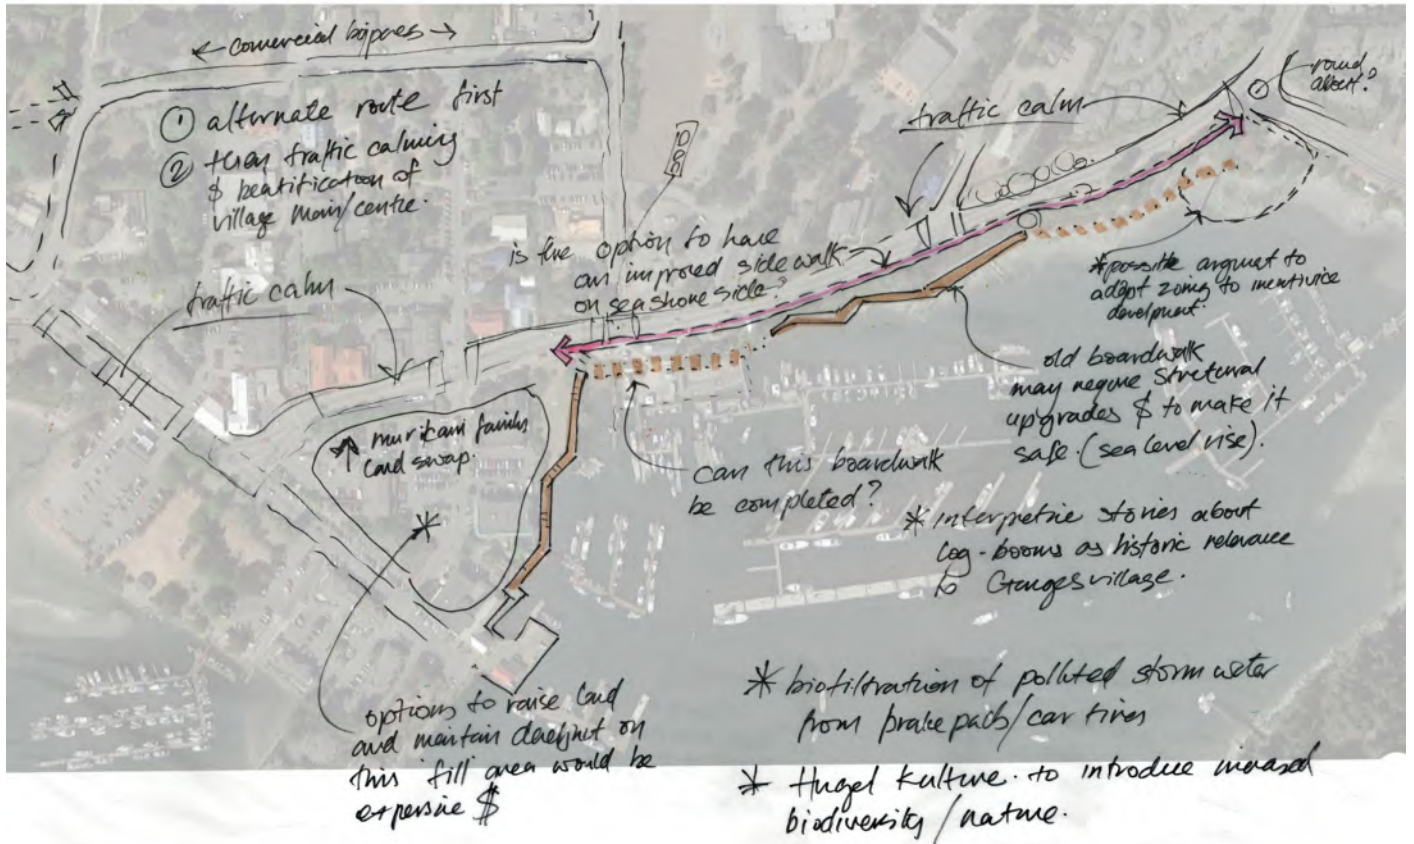 ← comercial bypass →
① alternate route first
② then traffic calming
$ beatification of
village main/centre.
traffic calm
round
about?
is the option to have
an improved sidewalk
on seashore side?
traffic calm
*possible argumet to
adapt zoning to incentivice
develpment.
old boardwalk
may require structural
upgrades $ to make it
safe. (sea level rise).
murikami family
land swap.
can this boardwalk
be completed?
* interpretive stories about
log-booms as historic relevance
to Ganges village.
options to raise land
and maintain
this fill area would be
expensive $
* biofiltration of polluted storm water
from brake pads/car tires
* Hugel kulture. to introduce increased
biodiversity/nature.